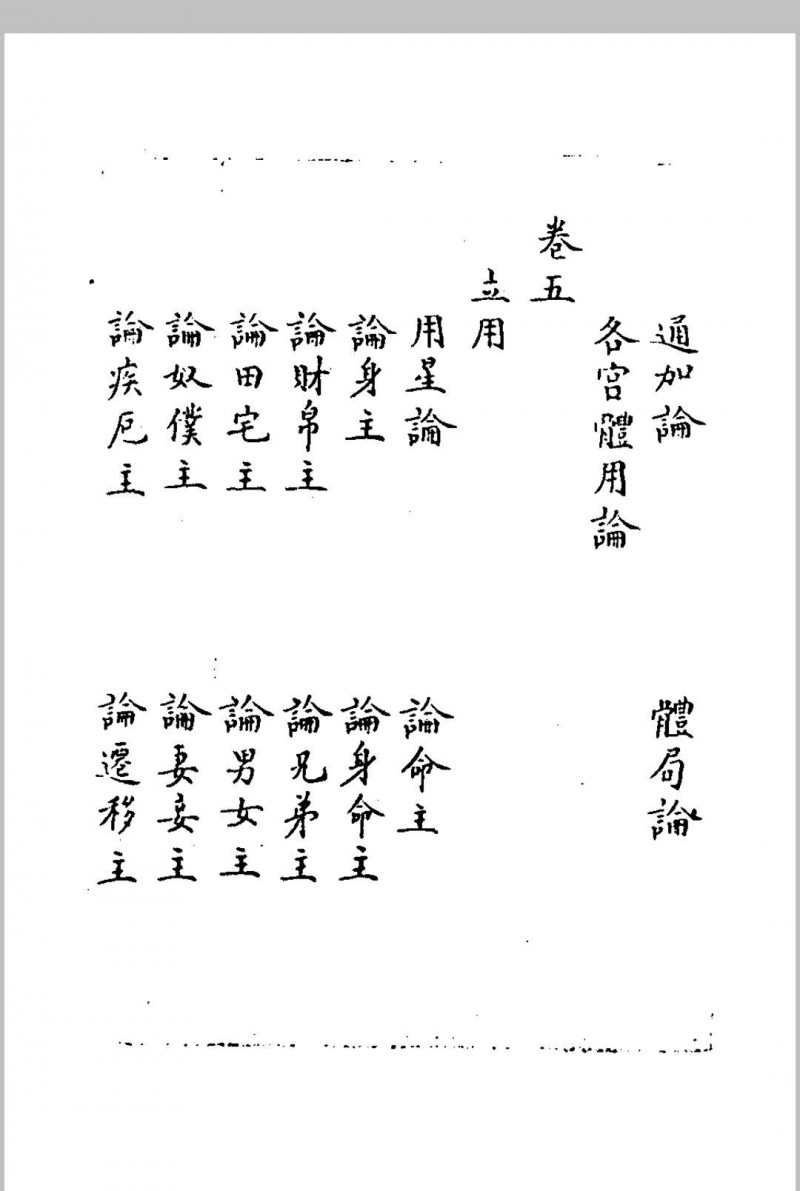 通加論　體局論
各宮體用論
卷五
立用
用星論　論命主
論身主　論身命主
論財帛主　論兄弟主
論田宅主　論男女主
論奴僕主　論妻妾主
論疾厄主　論遷移主